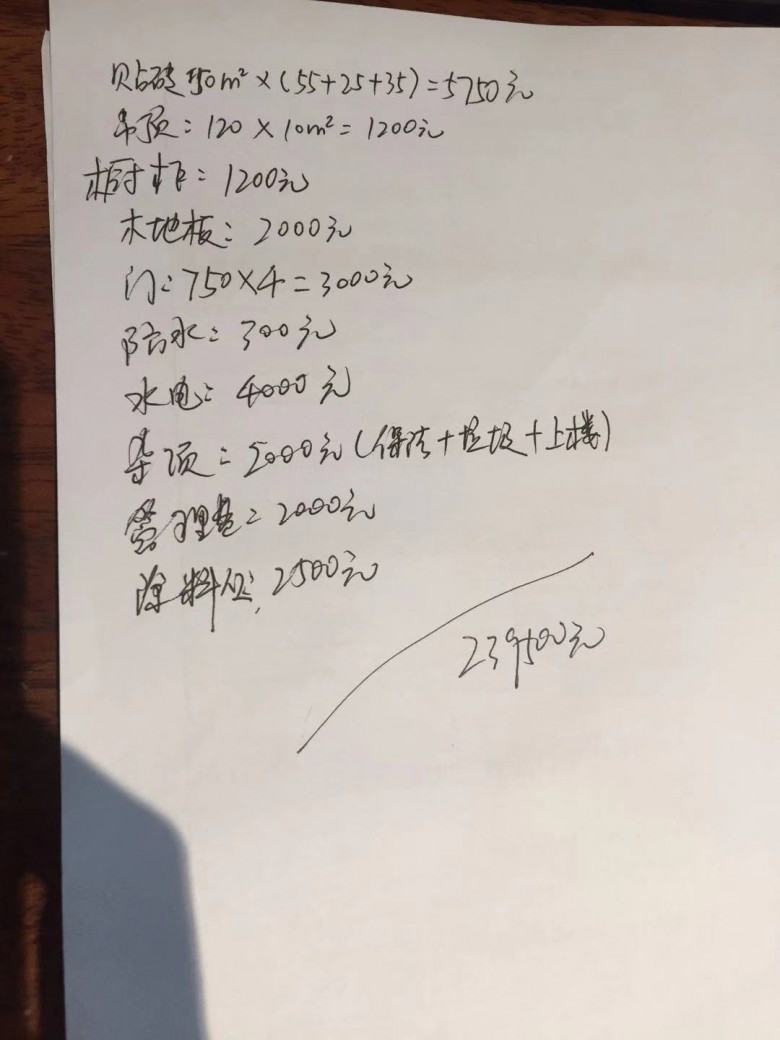 贴砖 50m² × (55+25+35) = 5750元
吊顶: 120 × 10m² = 1200元
橱柜: 1200元
木地板: 2000元
门: 750×4 = 3000元
防水: 300元
水电: 4000元
杂项: 2000元 (保洁+垃圾+上楼)
管理费: 2000元
涂料: 2500元
239500元